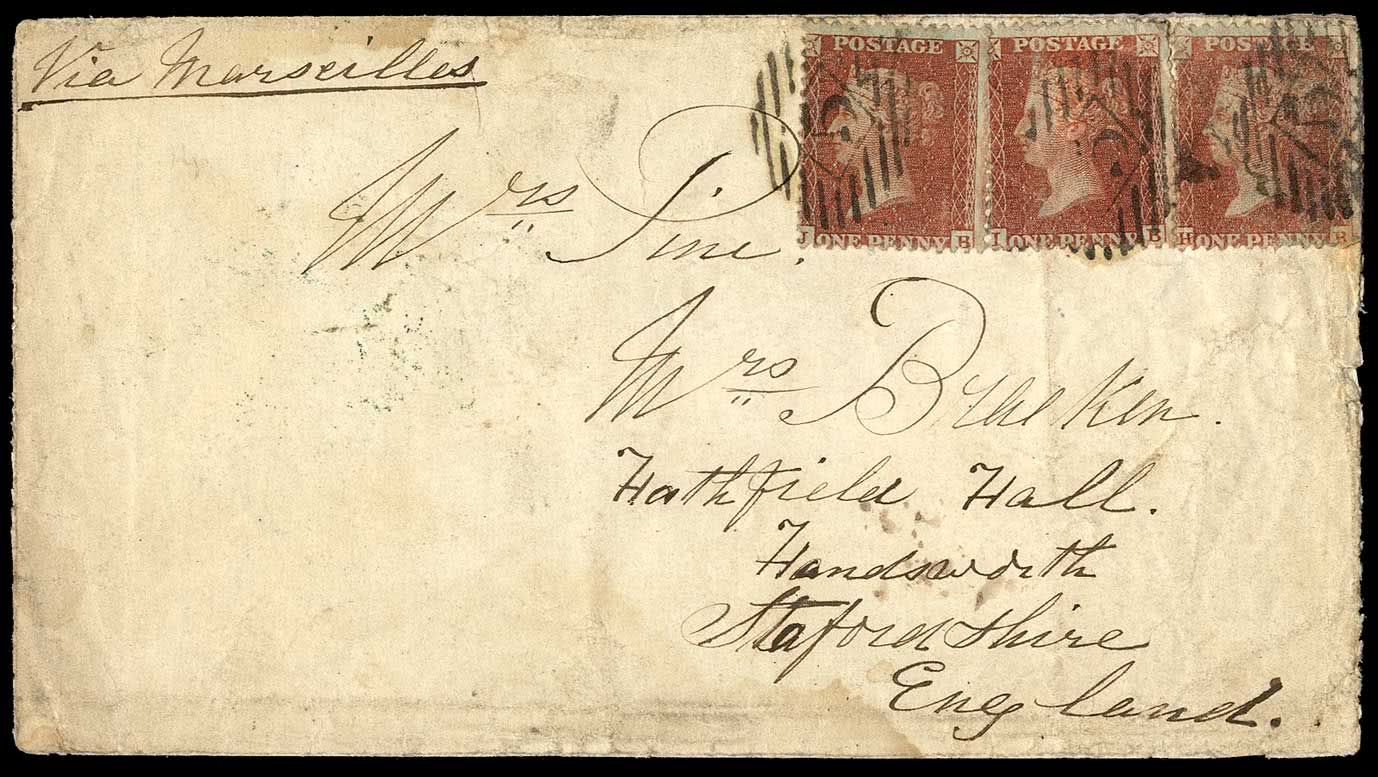 Via Marseilles
POSTAGE POSTAGE POSTAGE
J ONE PENNY B I ONE PENNY B H ONE PENNY B
Mrs Pine.
Mrs Bracken.
Hathfield Hall.
Handsworth
Stafordshire
England.